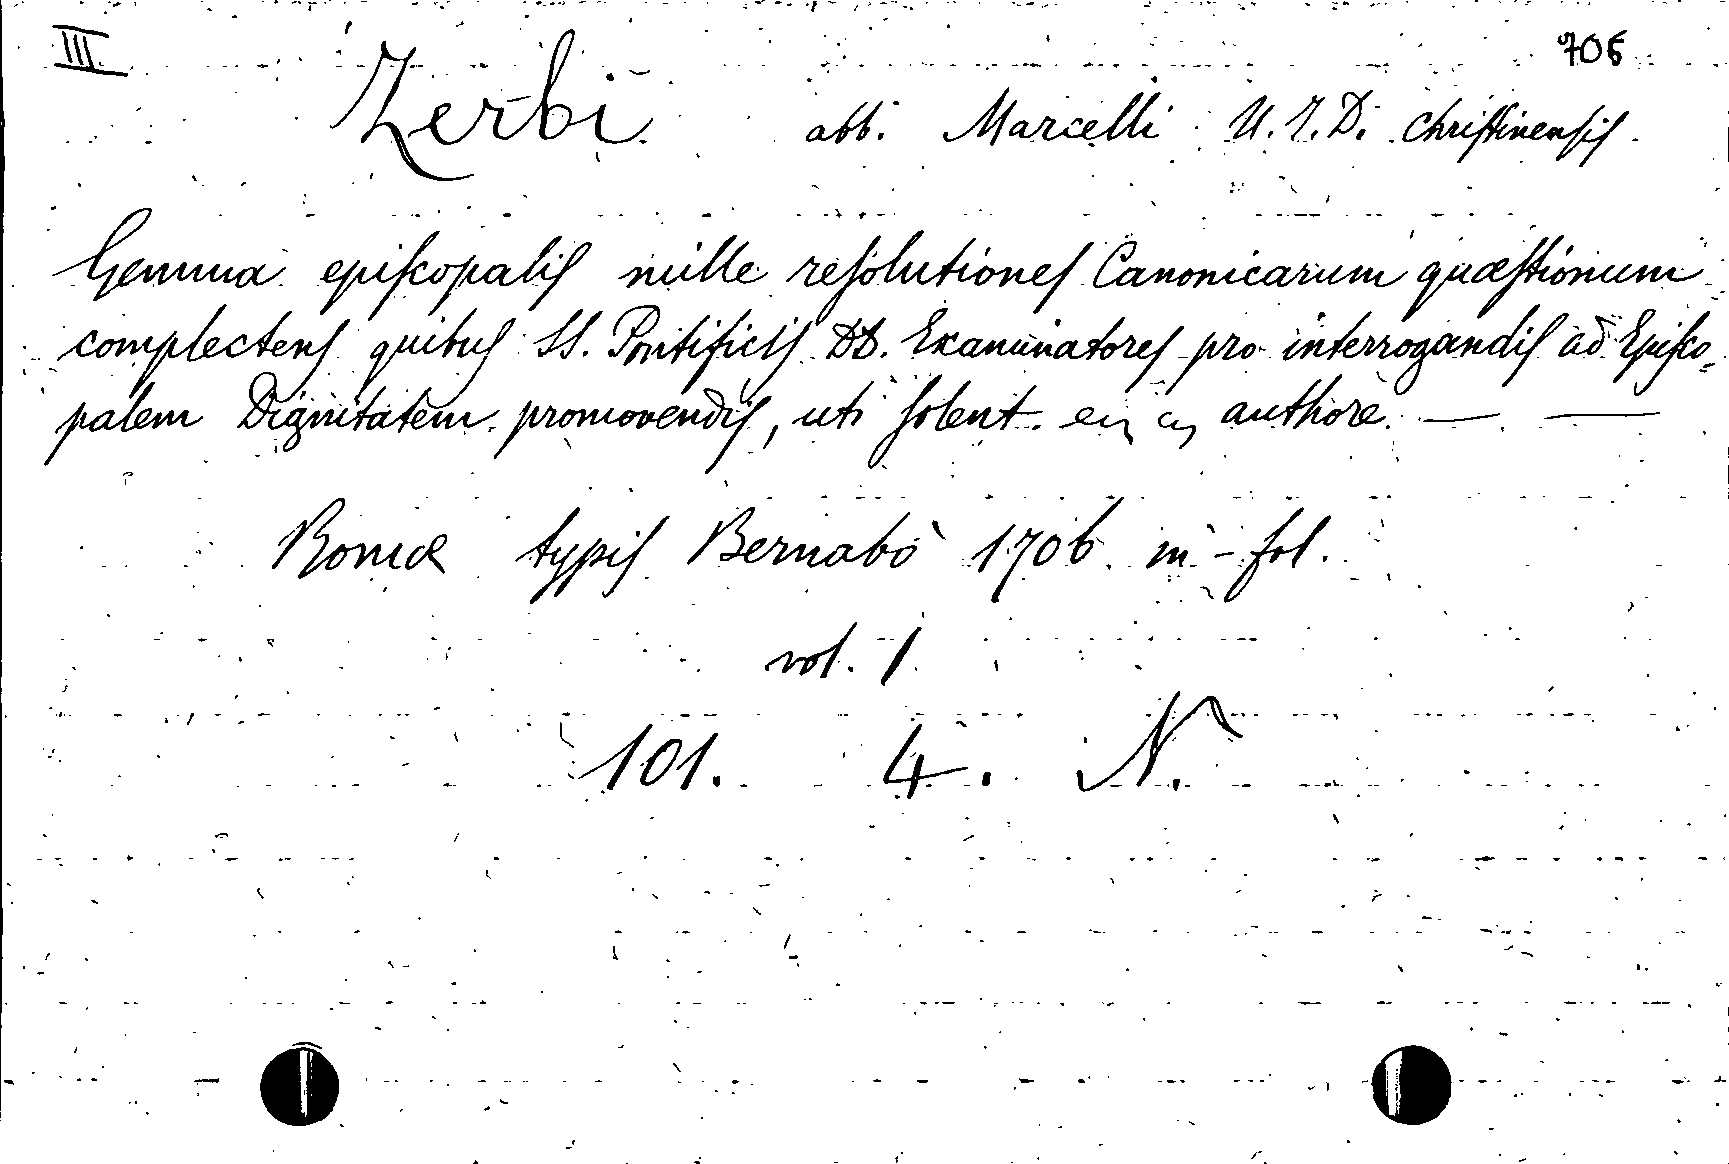 III 706
Zerbi abb. Marcelli U. I. D. Christinensis
Gemma episcopalis mille resolutiones Canonicarum quæstionum
complectens quibus SS. Pontificis DD. Examinatores pro interrogandis ad Episco=
palem Dignitatem promovendis, uti solent authore — —
Romæ typis Bernabò 1706 in-fol.
vol. 1
101. 4. N.